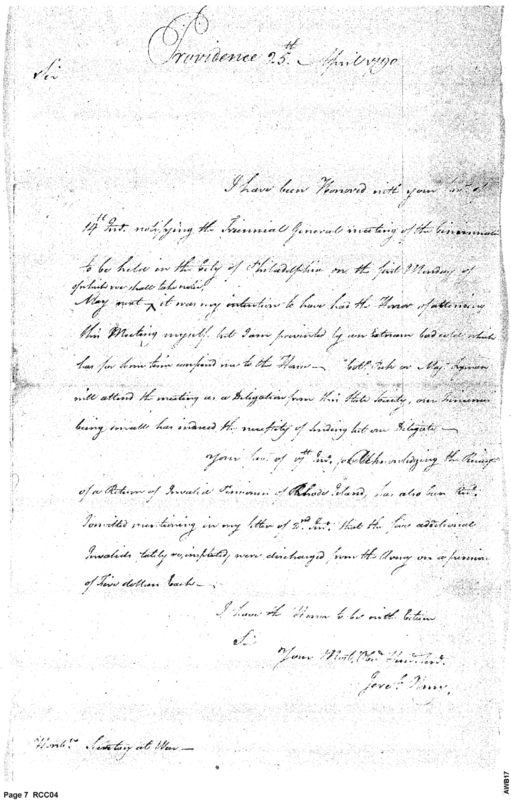 Providence 25th. April 1790
Sir
I have been Honored with your favr. of
14th Inst. notifying the Triennial General meeting of the Cincinnati
to be held in the City of Philadelphia on the first Monday of
of which we shall take notice.
May next ^ it was my intention to have had the Honor of attending
this Meeting myself but I am prevented by an extream bad cold which
has for some time confined me to the House — Colo. or Majr. Lyman
will attend the meeting as a Delegation from this State Society, our
being small has induced the necessity of sending but one Delegate —
Your favr. of 9th Inst. acknowledging the Receipt
of a Return of Invalid Pensioners of Rhode Island, has also been Recd.
I omitted mentioning in my letter of 2nd. Inst. that the five additional
Invalids lately were discharged from the Army on a pension
of Five dollars Each —
I have the Honor to be with Esteem
Sir
Your Most. Obed. Humb. Servt.
Jereh. Olney.
Honble. Secretary at War —
Page 7 RCC04
AWB17